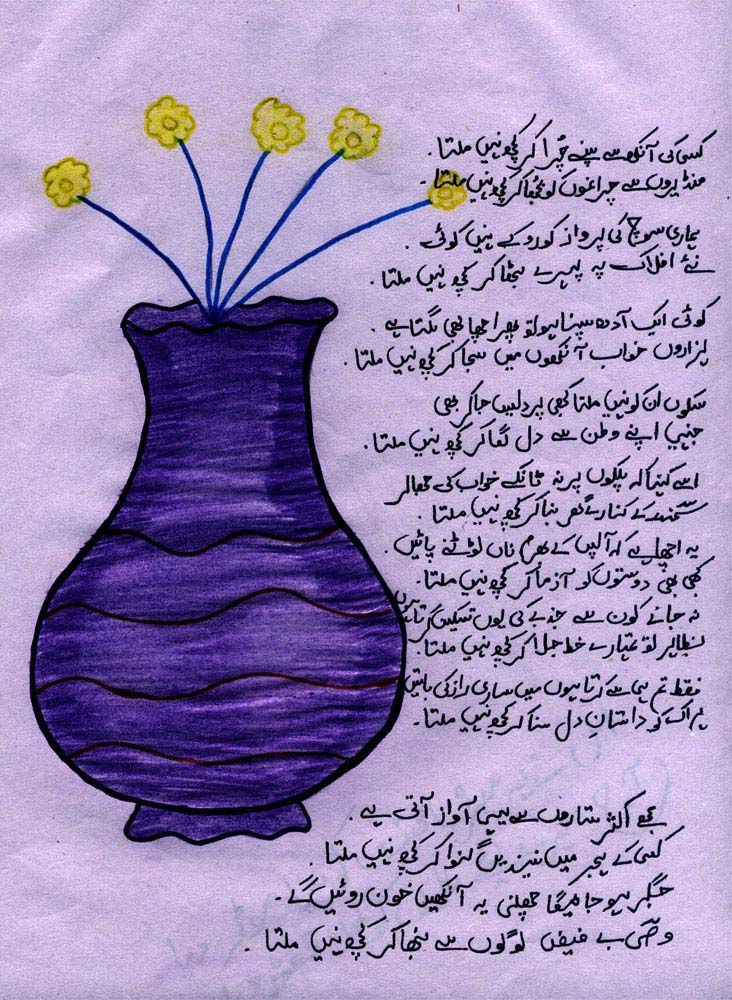 کسی کی آنکھ سے سپنے چُرا کر کچھ نہیں ملتا ۔
منڈیروں سے چراغوں کو بُجھا کر کچھ نہیں ملتا ۔
ہماری سوچ کی پرواز کو روکے نہیں کوئی ۔
نئے افلاک پہ پہرے بٹھا کر کچھ نہیں ملتا ۔
کوئی ایک آدھ سپنا ہو تو پھر اچھا بھی لگتا ہے ۔
ہزاروں خواب آنکھوں میں سجا کر کچھ نہیں ملتا ۔
سکوں ان کو نہیں ملتا کبھی پردیس جا کر بھی
جنہیں اپنے وطن سے دل لگا کر کچھ نہیں ملتا ۔
اسے کہنا کہ پلکوں پر نہ ٹانکے خواب کی جھالر
سمندر کے کنارے گھر بنا کر کچھ نہیں ملتا ۔
یہ اچھا ہے کہ آپس کے بھرم ناں ٹوٹنے پائیں ۔
کبھی بھی دوستوں کو آزما کر کچھ نہیں ملتا ۔
نہ جانے کون سے جذبے کی یوں تسکین کرتا ہوں
بظاہر تو تمہارے خط جلا کر کچھ نہیں ملتا ۔
فقط تم ہی سے کرتا ہوں میں ساری راز کی باتیں
ہر اک کو داستانِ دل سنا کر کچھ نہیں ملتا ۔
مجھے اکثر ستاروں سے یہی آواز آتی ہے ۔
کسی کے ہجر میں نیندیں گنوا کر کچھ نہیں ملتا ۔
جگر ہو جائیگا چھلنی یہ آنکھیں خون روئیں گے ۔
وصی بے فیض لوگوں سے نبھا کر کچھ نہیں ملتا ۔